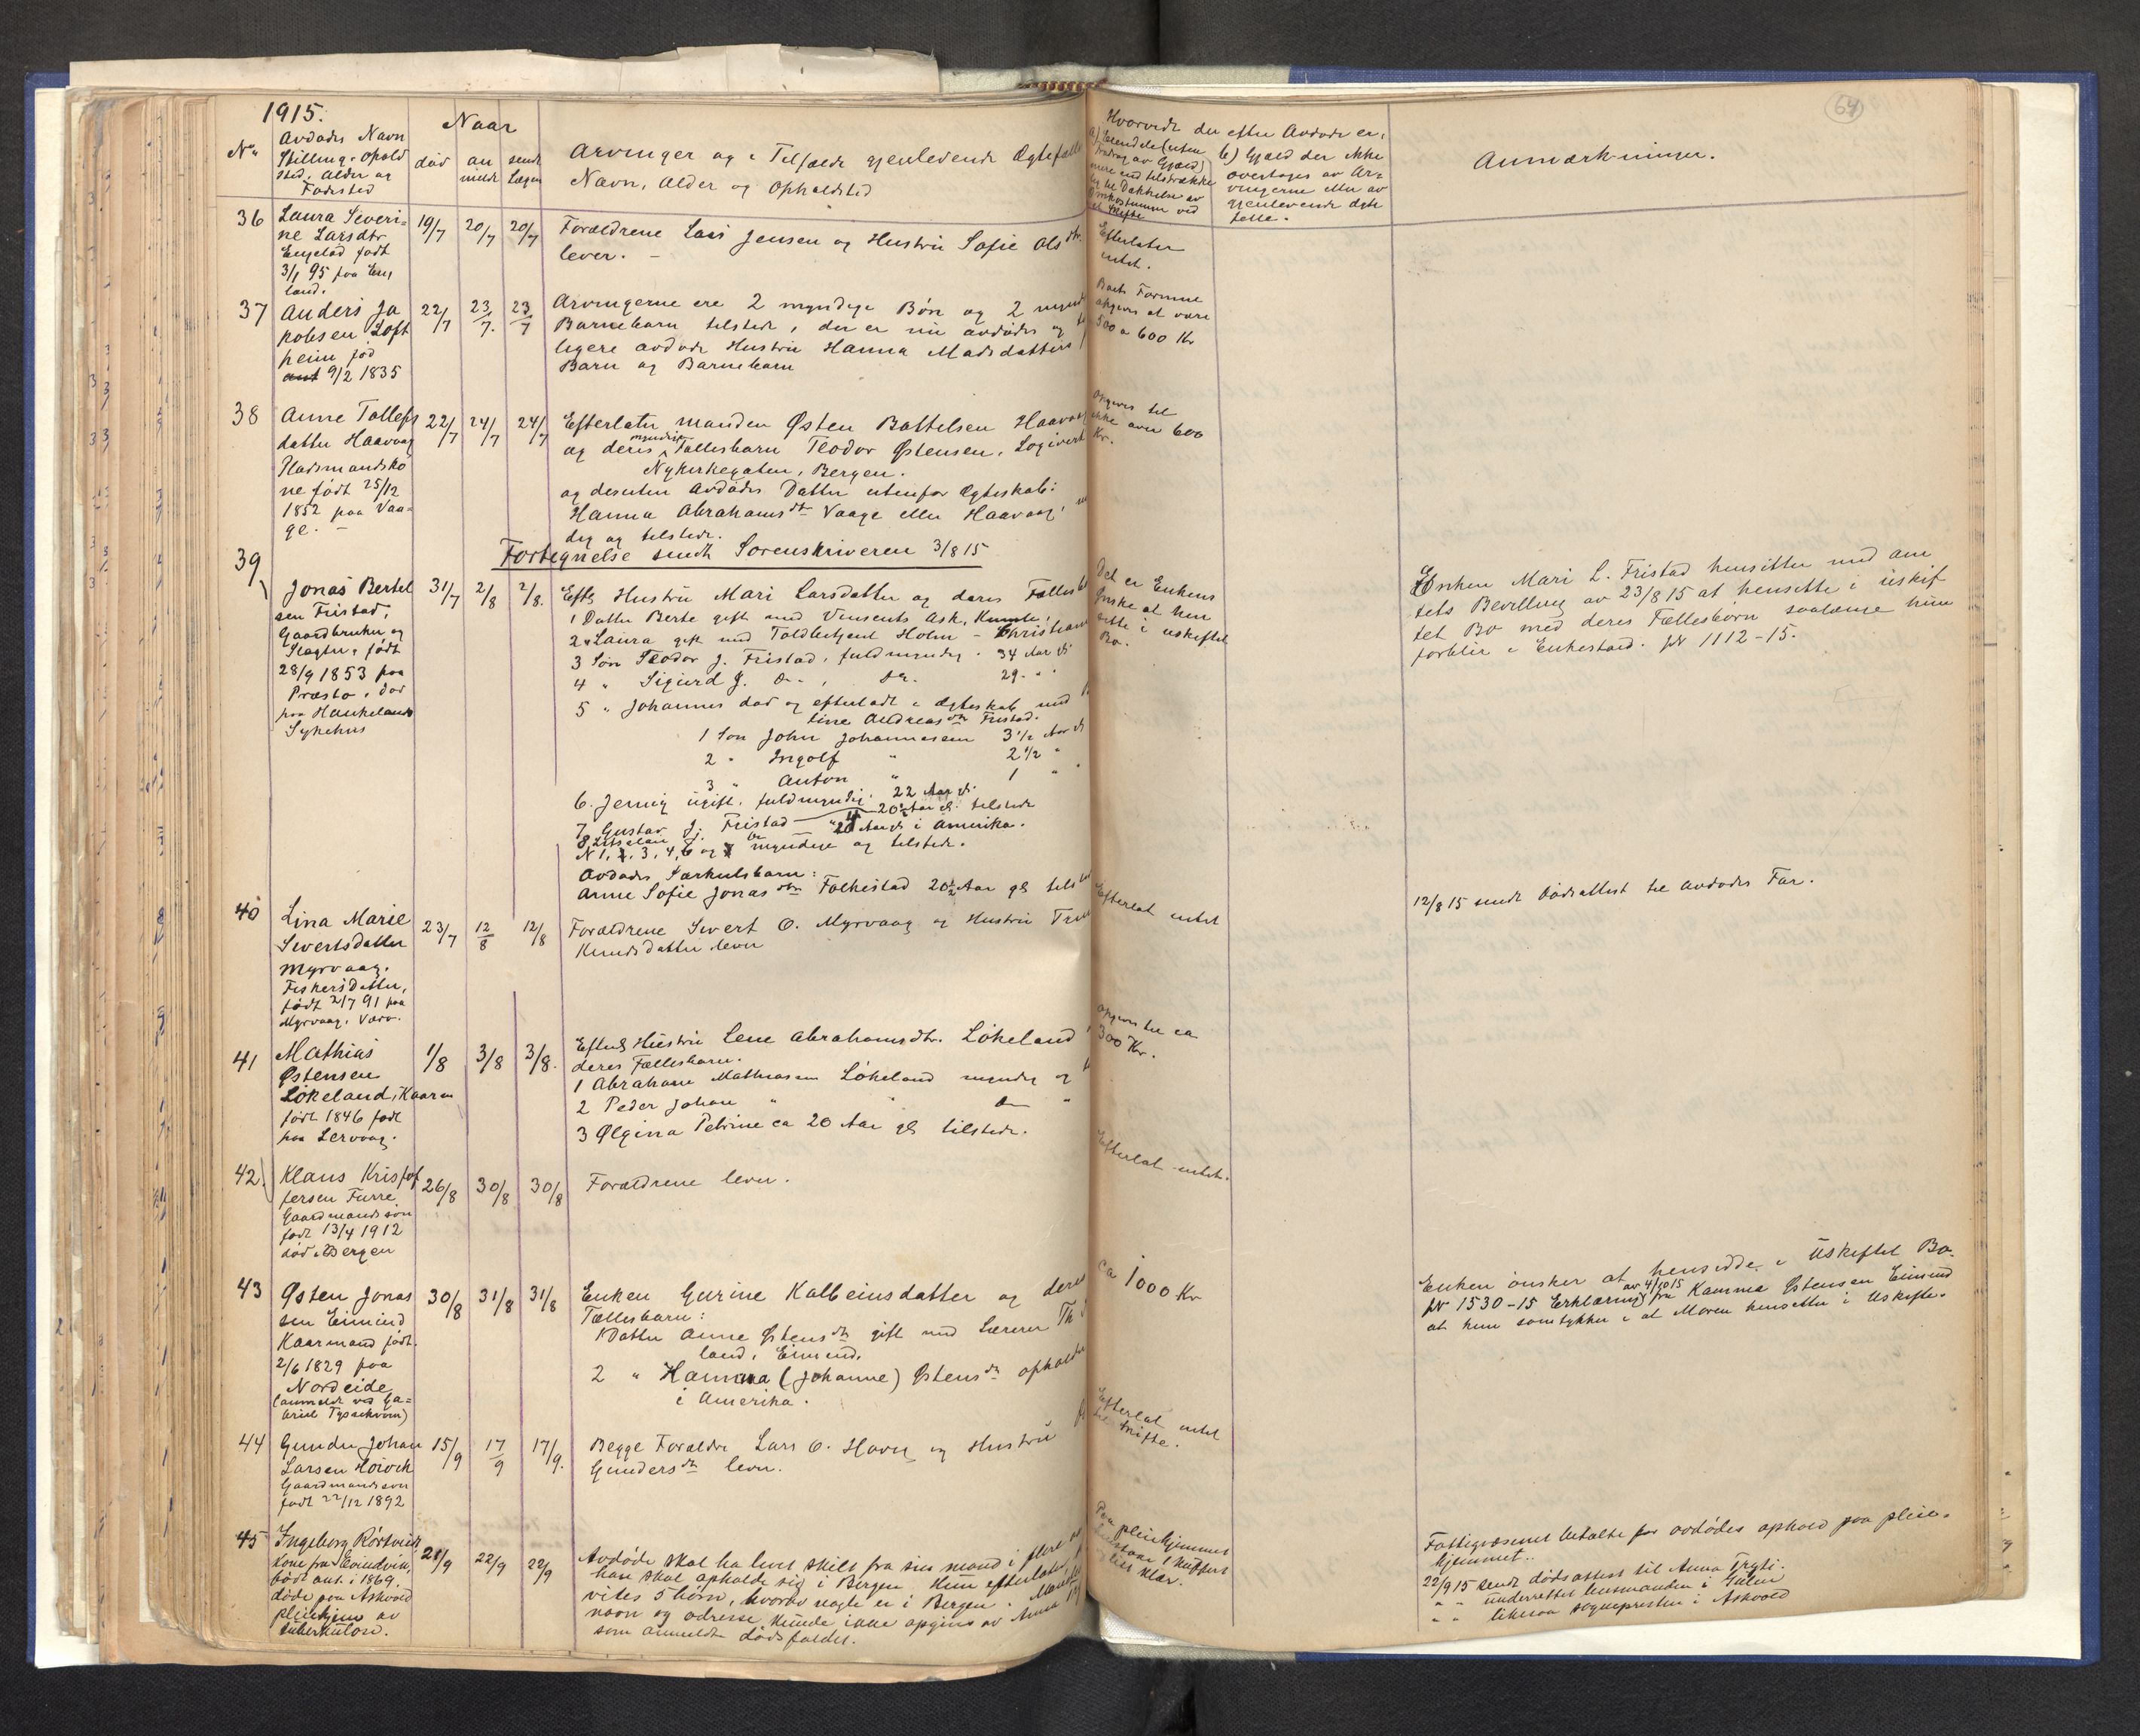 64
1915.
No
Avdødes Navn
Stilling, Opold
sted, Alder og
Fødested
Naar
død
an
meldt
sendt
Lægen
Arvinger og i Tilfælde gjenlevende Ægtefælle
Navn, Alder og Opholdsted
Hvorvidt der efter Avdøde er,
a) Eiendele (uten
Fradrag av Gjæld)
mere end tilstrække
lig til Dækkelse av
Omkostninger ved
et Skifte
b) Gjæld der ikke
overtages av Ar-
vingerne eller av
gjenlevende Ægte
fælle.
Anmærkninger.
36
Laura Severi-
ne Larsdtr
Engelad født
3/1 95 paa Eng
land.
19/7
20/7
20/7
Forældrene Lars Jensen og Hustru Sofie Olsdtr.
lever. -
Efterlater
intet.
37
Anders Ja
kobsen Loft
heim fød
9/2 1835
22/7
23/7.
23/7
Arvingerne ere 2 myndige Børn og 2 mynd
Barnebarn tilstede, der er nu avdødes og
ligere avdøde Hustru Hanna Madsdatters
Barn og Barnebarn
Boets Formue
opgives at være
500 a 600 Kr
38
Anne Tollefs
datter Haavaag
Pladsmandsko
ne født 25/12
1852 paa Vaa-
ge. -
22/7
24/7
24/7
Efterlater manden Østen Battelsen Haavaag
og deres myndige Fællesbarn Teodor Østensen, Logivert
Nykirkegaten, Bergen.
og desuten Avdødes Datter utenfor Ægteskab:
Hanna Abrahamsdtr Vaage eller Haavaag,
dig og tilstede.
Opgives til
ikke over 600
Kr.
Fortegnelse sendt Sorenskriveren 3/8 15
39
Jonas Bertel
sen Fristad,
Gaardbruker og
Slagter, født
28/9 1853 paa
Præstø, død
paa Haukelands
Sykehus
31/7
2/8
2/8.
Eftl Hustru Mari Larsdatter og deres Fællesb
1 Datter Berte gift med Vinsents Ask,
2 " Laura gift med Toldbetjent Holm - Christian
3 Søn Teodor J. Fristad, fuldmyndig. 34 Aar gl
4 " Sigurd J. Do - , do. 29. " "
5 " Johannes død og efterladt i Ægteskab med
Line Andreasdtr Fristad.
1 Søn John Johannesen 3 1/2 Aar gl
2 " Ingolf " 2 1/2 "
3 " Anton " 1 " "
6. Jenny ugift, fuldmyndig. 22 Aar gl.
7 Gustav J. Fristad 20 1/2 Aar gl. tilstede
8 20 Aar gl i Amerika.
N 1, 2, 3, 4, 6 og 7 myndige og tilstede.
Avdødes Særkulsbarn:
Anne Sofie Jonasdtr Folkestad 20 1/2 Aar gl tilst
Det er Enkens
Ønske at hen
sitte i uskiftet
Bo.
Enken Mari L. Fristad hensitter med Am
tets Bevilling av 23/8 15 at hensitte i uskif
tet Bo med deres Fællesbørn saalænge hun
forblir i Enkestand. JN 1112-15.
40
Lina Marie
Sivertsdatter
Myrvaag.
Fiskersdatter,
født 2/7 91 paa
Myrvaag, Værø.
23/7
12/8
12/8
Forældrene Sivert O. Myrvaag og Hustru
Knudsdatter lever
Efterlat intet
12/8 15 sendt Dødsattest til Avdødes Far.
41
Mathias
Østensen
Løkeland, Kaarm
født 1846 født
paa Lervaag.
1/8
3/8
3/8.
Efterl Hustru Lene Abrahamsdtr. Løkeland
deres Fællesbarn.
1 Abraham Mathiasen Løkeland myndig og
2 Peder Johan " " Do "
3 Olgina Petrine ca 20 Aar gl tilstede.
Opgives til ca
300 Kr.
42
Klaus Kristof
fersen Furre
Gaardmandssøn
født 13/4 1912
død i Bergen
26/8
30/8
30/8
Forældrene lever.
Efterlat intet.
43
Østen Jonas
sen Eimind
Kaarmand født.
2/6 1829 paa
Nordeide
(anmeldt ved Ga-
briel Tyssekvam)
30/8
31/8
31/8
Enken Gurine Kolbeinsdatter og deres
Fællesbarn:
1 Datter Anne Østensdtr gift med Lærerer Th
land, Eimind.
2 " Hanna (Johanne) Østensdtr opholder
i Amerika.
ca 1000 Kr
Enken ønsker at hensidde i Uskiftet Bo.
JN 1530-15 Erklæring av 4/10 15 fra Kamma Østensen Eimind
at hun samtykker i at Moren hensitter i Uskifte.
44
Gunder Johan
Larsen Hoivik
Gaardmandssøn
født 22/12 1892
15/9
17/9
17/9.
Begge Forældre Lars O. Høivik og Hustru
Gundersdtr lever.
Efterlat intet
til Skifte.
45
Ingeborg Rörtveit
kone fra Evindvik,
født ant. i 1869.
døde paa Askvold
pleiehjem av
tuberkulose.
21/9
22/9
22/9
Avdøde skal ha levet skilt fra sin mand i flere
han skal opholde sig i Bergen. Hun efterlater,
vites 5 börn, hvorav nogle er i Bergen. Mandens
navn og adresse kunde ikke opgives av Anna
som anmeldte dødsfaldet.
Paa pleiehjemmet
1 kuffert
litt klær.
Fattigvæsenet betalte for avdødes ophold paa pleie-
hjemmet.
22/9 15 sendt dødsattest til Anna Trgli.
" " underrettet lensmanden i Gulen
" " likesaa sognepresten i Askvold